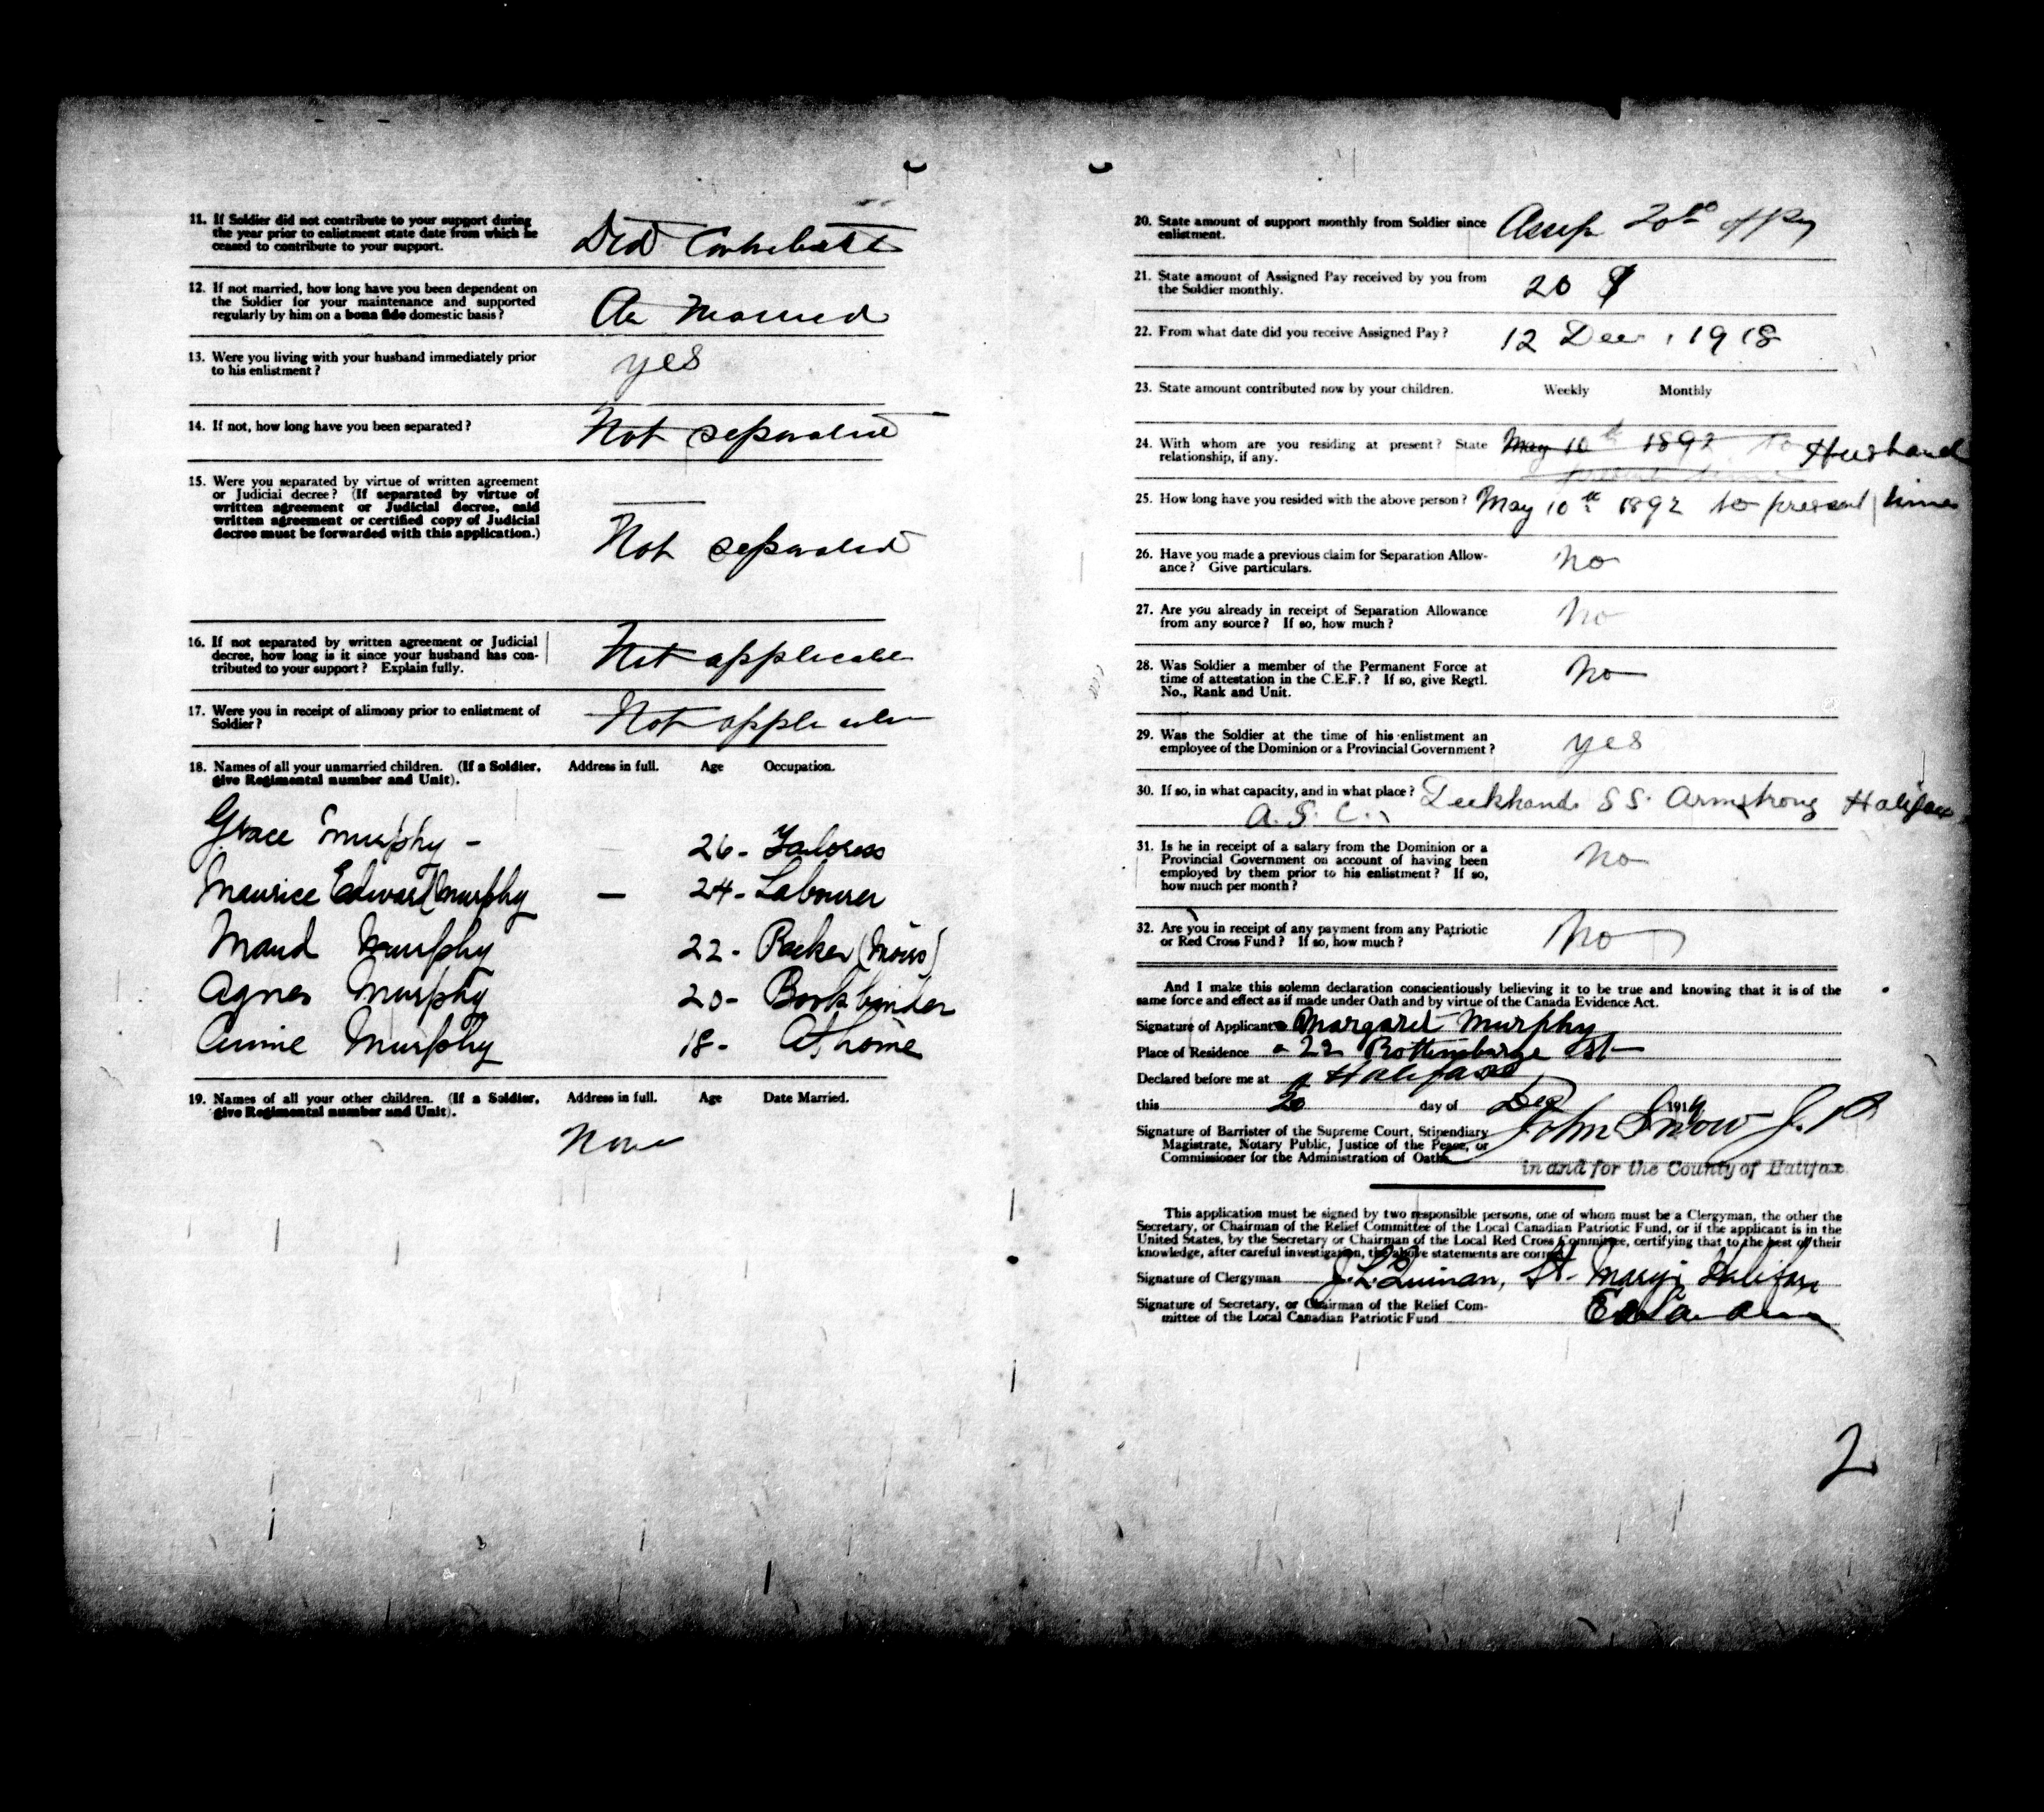 11. If Soldier did not contribute to your support during
the year prior to enlistment state date from which he
ceased to contribute to your support.
Did Contribute
12. If not married, how long have you been dependent on
the Soldier for your maintenance and supported
regularly by him on a bona fide domestic basis?
Married
13. Were you living with your husband immediately prior
to his enlistment?
yes
14. If not, how long have you been separated?
Not separated
15. Were you separated by virtue of written agreement
or Judicial decree? (If separated by virtue of
written agreement or Judicial decree, said
written agreement or certified copy of Judicial
decree must be forwarded with this application.)
Not separated
16. If not separated by written agreement or Judicial
decree, how long is it since your husband has con-
tributed to your support? Explain fully.
Not applicable
17. Were you in receipt of alimony prior to enlistment of
Soldier?
Not applicable
18. Names of all your unmarried children. (If a Soldier, Address in full. Age Occupation.
give Regimental number and Unit).
Grace Murphy - 26 - Tailoress
Maurice Edward Murphy - 24 - Labourer
Maud Murphy 22 - Packer (Moirs)
Agnes Murphy 20 - Bookbinder
Annie Murphy 18 - At home
19. Names of all your other children. (If a Soldier, Address in full. Age Date Married.
give Regimental number and Unit).
None
20. State amount of support monthly from Soldier since
enlistment.
21. State amount of Assigned Pay received by you from
the Soldier monthly.
20 $
22. From what date did you receive Assigned Pay?
12 Dec. 1918
23. State amount contributed now by your children. Weekly Monthly
24. With whom are you residing at present? State May 10th 1892 to Husband
relationship, if any. present time
25. How long have you resided with the above person? May 10th 1892 to present time
26. Have you made a previous claim for Separation Allow-
ance? Give particulars.
No
27. Are you already in receipt of Separation Allowance
from any source? If so, how much?
No
28. Was Soldier a member of the Permanent Force at
time of attestation in the C.E.F.? If so, give Regtl.
No., Rank and Unit.
No
29. Was the Soldier at the time of his enlistment an
employee of the Dominion or a Provincial Government?
yes
30. If so, in what capacity, and in what place? Deckhand SS. Armstrong Halifax
A. S. C.
31. Is he in receipt of a salary from the Dominion or a
Provincial Government on account of having been
employed by them prior to his enlistment? If so,
how much per month?
No
32. Are you in receipt of any payment from any Patriotic
or Red Cross Fund? If so, how much?
No
And I make this solemn declaration conscientiously believing it to be true and knowing that it is of the
same force and effect as if made under Oath and by virtue of the Canada Evidence Act.
Signature of Applicant Margaret Murphy
Place of Residence 22 St
Declared before me at Halifax
this 20 day of Dec 191
Signature of Barrister of the Supreme Court, Stipendiary
Magistrate, Notary Public, Justice of the Peace, or
Commissioner for the Administration of Oaths
John Snow J.P.
in and for the County of Halifax.
This application must be signed by two responsible persons, one of whom must be a Clergyman, the other the
Secretary, or Chairman of the Relief Committee of the Local Canadian Patriotic Fund, or if the applicant is in the
United States, by the Secretary or Chairman of the Local Red Cross Committee, certifying that to the best of their
knowledge, after careful investigation, the above statements are correct.
Signature of Clergyman J. L. Quinan, St. Mary's Halifax
Signature of Secretary, or Chairman of the Relief Com-
mittee of the Local Canadian Patriotic Fund
2